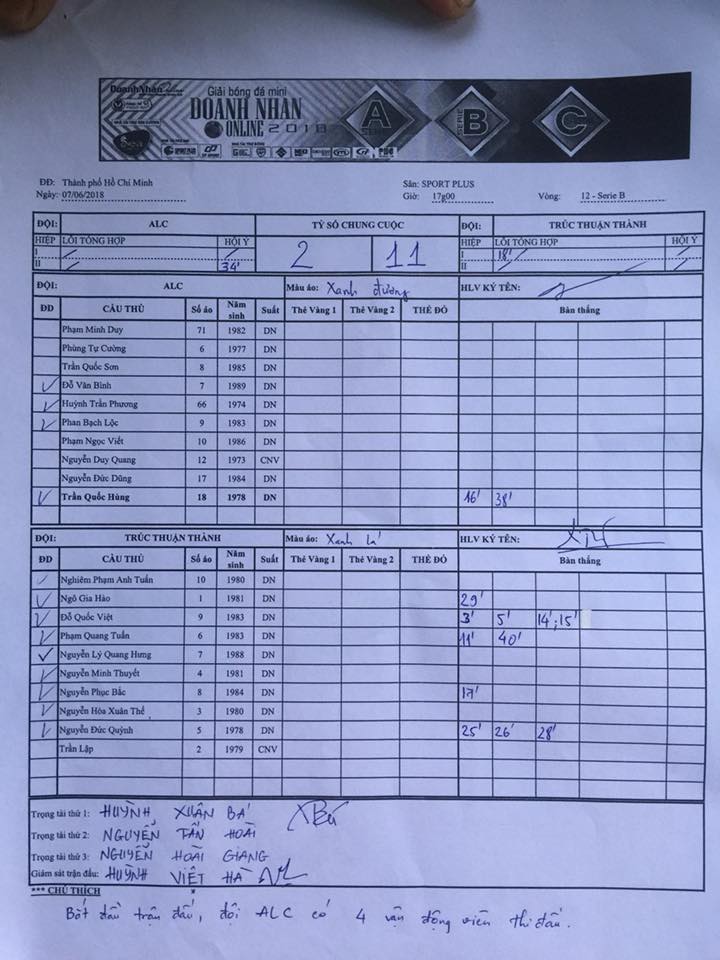 DoanhNhân
Giải bóng đá mini
DOANH NHÂN
ONLINE 2018
A
SERIE B
C
ĐĐ: Thành phố Hồ Chí Minh Sân: SPORT PLUS
Ngày: 07/06/2018 Giờ: 17g00 Vòng: 12 - Serie B
ĐỘI: ALC TỶ SỐ CHUNG CUỘC ĐỘI: TRÚC THUẬN THÀNH
HIỆP LỖI TỔNG HỢP HỘI Ý 2 11 HIỆP LỖI TỔNG HỢP HỘI Ý
I I 18'
II 34' II
ĐỘI: ALC Màu áo: Xanh dương HLV KÝ TÊN:
ĐD CẦU THỦ Số áo Năm sinh Suất Thẻ Vàng 1 Thẻ Vàng 2 THẺ ĐỎ Bàn thắng
Phạm Minh Duy 71 1982 DN
Phùng Tự Cường 6 1977 DN
Trần Quốc Sơn 8 1985 DN
Đỗ Văn Bình 7 1989 DN
Huỳnh Trần Phương 66 1974 DN
Phan Bạch Lộc 9 1983 DN
Phạm Ngọc Viết 10 1986 DN
Nguyễn Duy Quang 12 1973 CNV
Nguyễn Đức Dũng 17 1984 DN
Trần Quốc Hùng 18 1978 DN 16' 38'
ĐỘI: TRÚC THUẬN THÀNH Màu áo: Xanh lá HLV KÝ TÊN:
ĐD CẦU THỦ Số áo Năm sinh Suất Thẻ Vàng 1 Thẻ Vàng 2 THẺ ĐỎ Bàn thắng
Nghiêm Phạm Anh Tuấn 10 1980 DN
Ngô Gia Hào 1 1981 DN 29'
Đỗ Quốc Việt 9 1983 DN 3' 5' 14'; 15'
Phạm Quang Tuấn 6 1983 DN 11' 40'
Nguyễn Lý Quang Hưng 7 1988 DN
Nguyễn Minh Thuyết 4 1981 DN
Nguyễn Phục Bắc 8 1984 DN 17'
Nguyễn Hòa Xuân Thể 3 1980 DN
Nguyễn Đức Quỳnh 5 1978 DN 25' 26' 28'
Trần Lập 2 1979 CNV
Trọng tài thứ 1: HUỲNH XUÂN BÁ
Trọng tài thứ 2: NGUYỄN TẤN HOÀI
Trọng tài thứ 3: NGUYỄN HOÀI GIANG
Giám sát trận đấu: HUỲNH VIỆT HÀ
*** CHÚ THÍCH
Bắt đầu trận đấu, đội ALC có 4 vận động viên thi đấu.